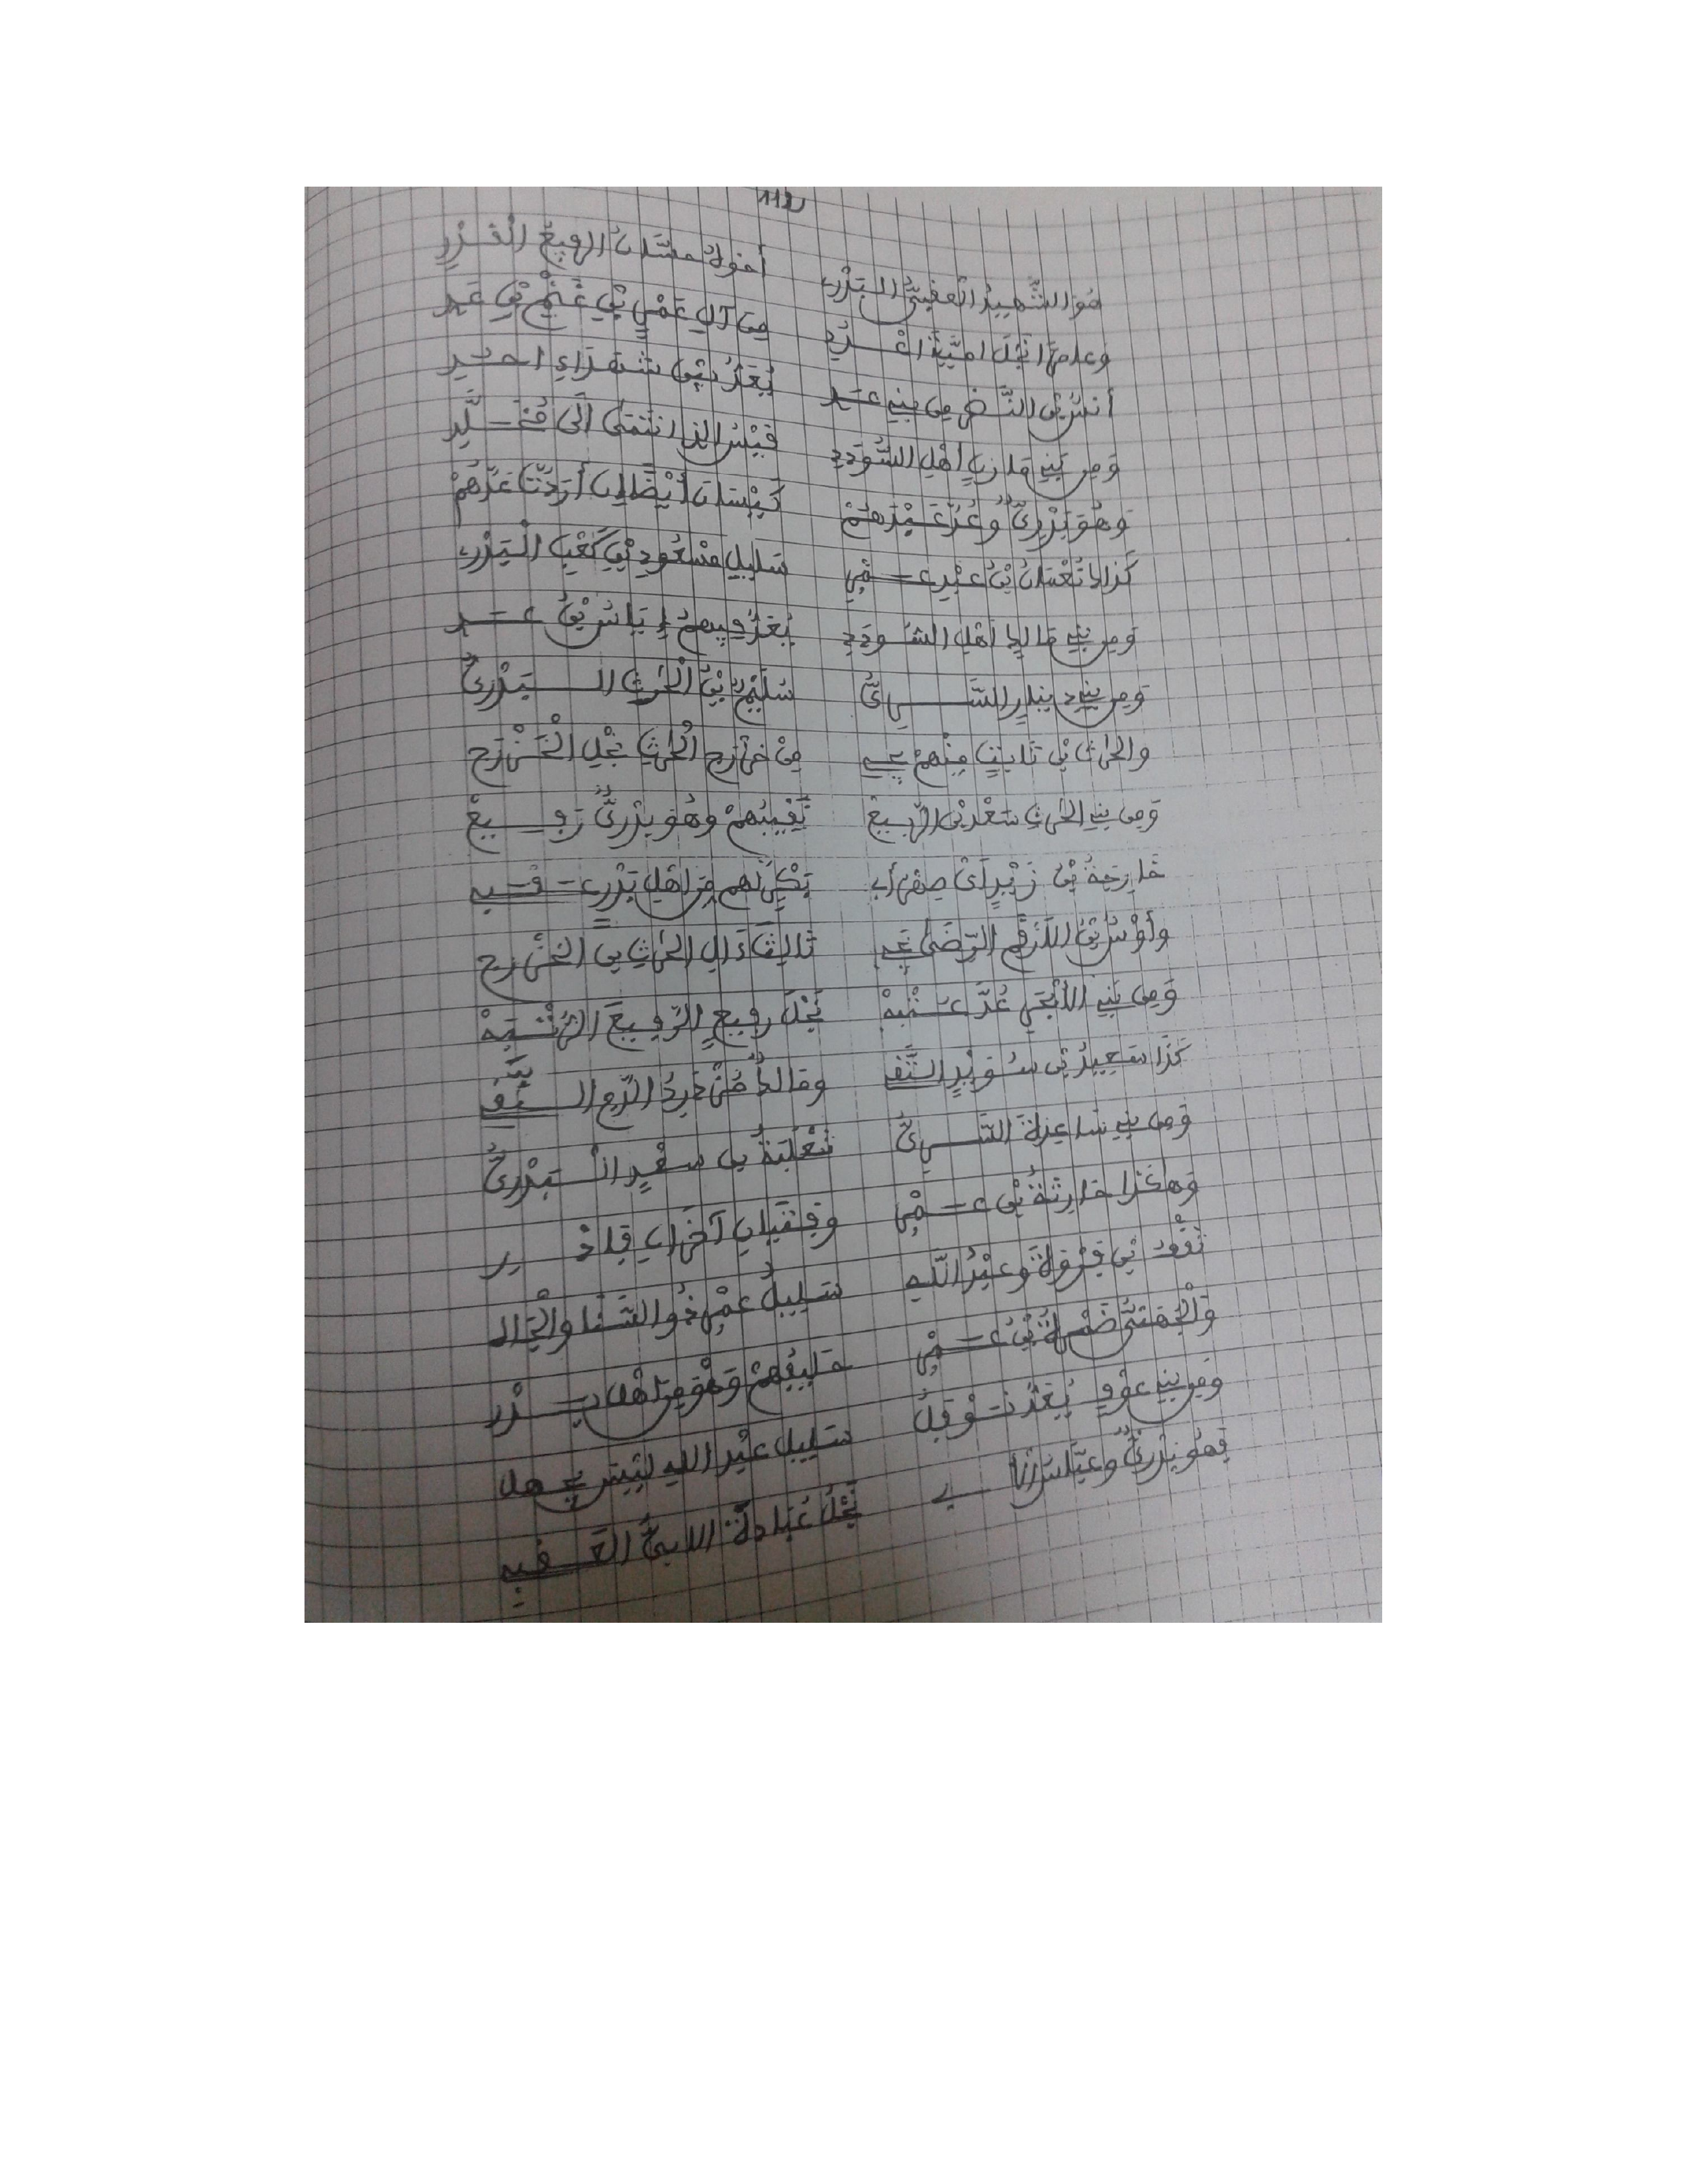 112
هُوَ الشَّهِيدُ الْعَقَبِيُّ الْبَدْرِي أخوهُ حسَّانُ الرفِيعُ الْقَدْرِ
وعامرٌ نَجْلُ امَيَّةَ اعْدُدِ مِنَ آلِ عَمْرِو بْنِ غَنْمِ بْنِ عَدِ
أنسُ بْنُ النَّضْرِ مِن بَنِي عَدِ يُعَدُّ مِن شُهَدَاءِ احُدِ
وَمِن بَنِي مَازِنٍ اَهْلِ السُّودَدِ قَيْسُ الذِ انْتَمَى الَى مُخَلَّدِ
وَهُوَ بَدْرِيٌّ وَعُدَّ عَبْدَهُمْ كَيْسَانَ أَيْضًا انْ أرَدْتَ عَدَّهُمْ
كَذَاكَ نُعْمَانُ بْنُ عَبْدِ عَمْرِ سَلِيلِ مَسْعُودِ بْنِ كَعْبِ الْبَدْرِي
وَمِن بَنِي مَالِكٍ اَهْلِ السُّودَدِ يُعَدُّ فِيهِمُ إيَاسُ بْنُ عَدِ
وَمِن بَنِي دِينَارٍ السَّرِيُّ سُلَيْمُ بْنُ الْحَرِثِ الْبَدْرِيُّ
والحَرِثُ بْنُ ثَابِتٍ مِنْهُمْ يَجِي مِنْ خَزْرَجِ الْحَرِثِ نَجْلِ الْخَزْرَجِ
وَمِن بَنِي الحَرِثِ سَعْدُ بْنُ الرَّبِيعْ نَقِيبُهُمْ وَهُوَ بَدْرِيٌّ رَفِيعْ
خَارِجَةُ بْنُ زَيْدٍ اَىْ صِهْرُ أبِي بَكْرٍ لَهُم مِنَ اهْلِ بَدْرٍ عَقَبِي
وأوْسُ بْنُ اللَارْقَمِ الرِّضَى يَجِي ثَالِثَ ءَالِ الحَرِثِ بْنِ الخَزْرَجِ
وَمِن بَنِي الأَبْجَرِ عُدَّ عُتْبَهْ نَجْلَ رفِيعٍ الرَّفِيعَ الرُّتْبَهْ
كَذَا سَعِيدُ بْنُ سُوَيْدٍ التَّقِي ومَالكٌ خُدْرِيُّ الرَّجِ النَّقِي
وَمِن بَنِي سَاعِدةَ السَّرِيُّ ثَعْلَبَةُ بْنُ سَعْدٍ الْبَدْرِيُّ
وَهَاكَذَا حَارِثَةُ بْنُ عَمْرِو وَفِتْيَانِ آخَرَانِ فَادْرِ
نَقْفُ بْنُ فَرْوَةَ وعَبْدُ اللَّهِ سَلِيلُ عَمْرٍو ذُو السَّنَا والْجَاهِ
وَالْجُهَنِيُّ ضَمْرَةُ بْنُ عَمْرِو حَلِيفُهُمْ وَهْوَ مِنَ اهْلِ بَدْرِ
وَمِن بَنِي عَوْفٍ يُعَدُّ نَوْفَلُ سَلِيلُ عَبْدِ اللهِ لَيْسَ يُجْهَلُ
فَهُوَ بَدْرِيٌّ وعَبَّاسُ نَجْلُ عُبَادَةَ الابِيُّ الْعَقَبِي